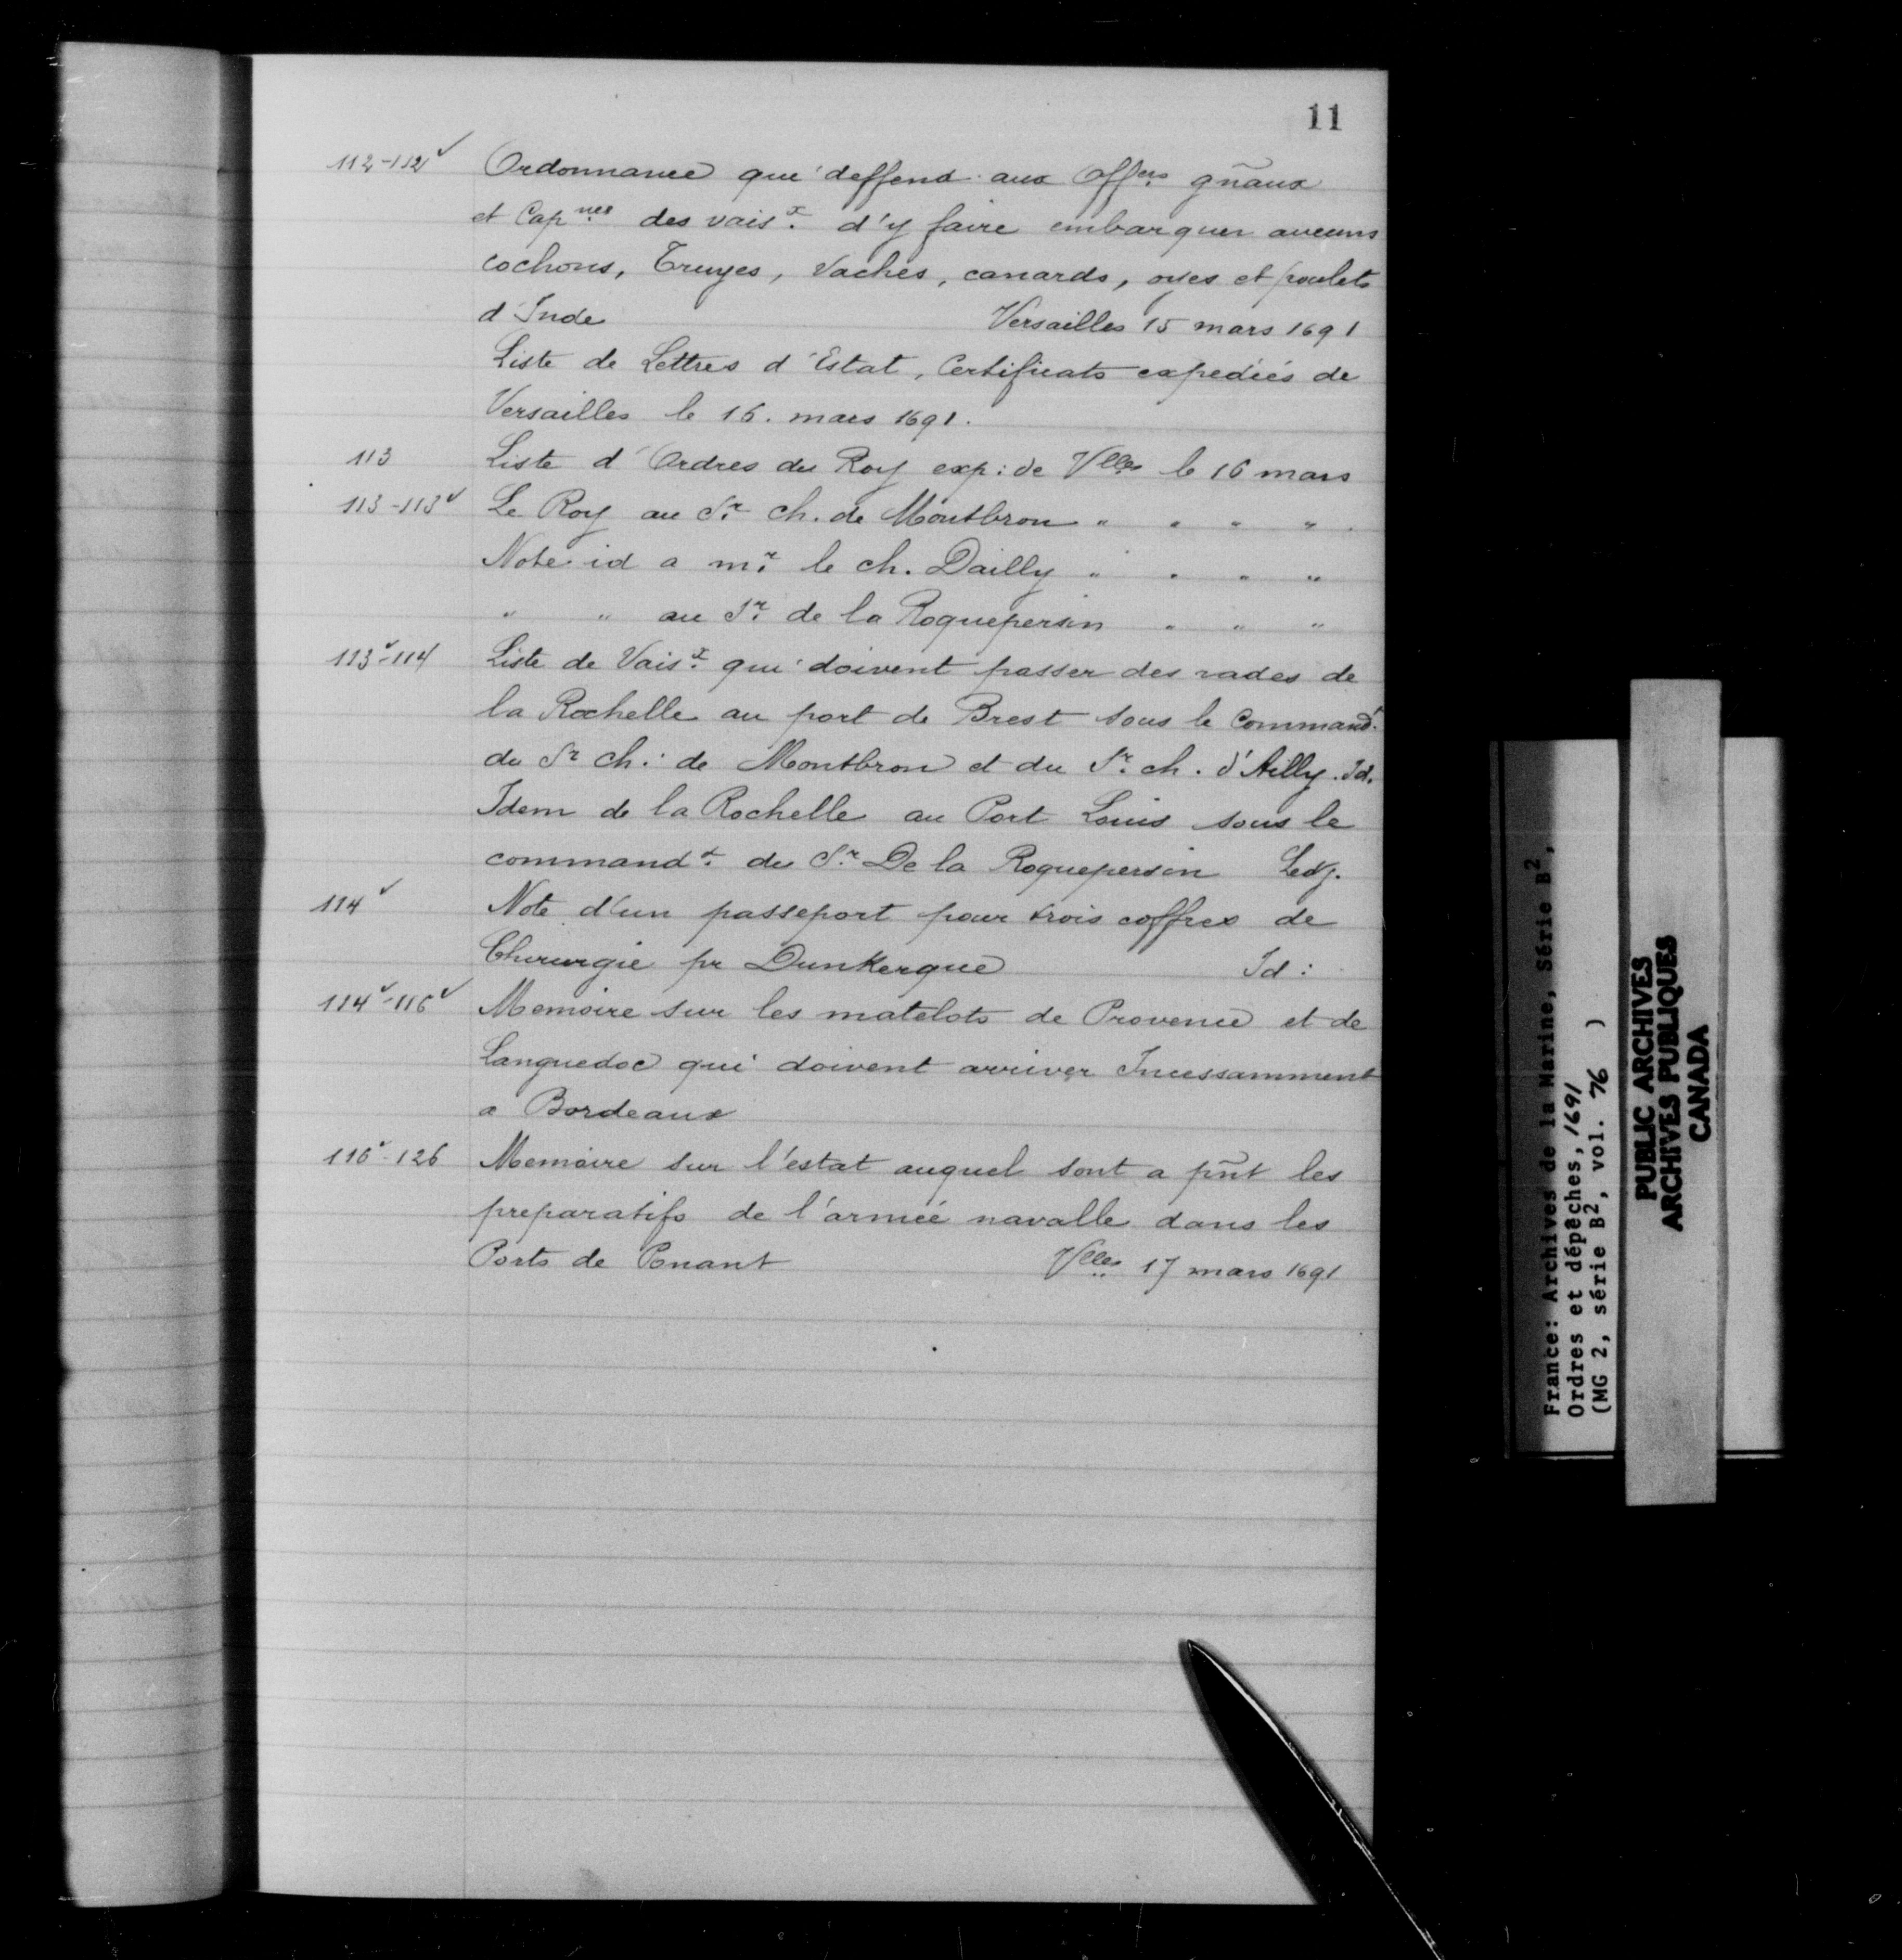 11
112-112v Ordonnance qui deffend aux Offers gñaux
et Capnes des vaisx d'y faire embarquer aucuns
cochons, Truyes, Vaches, canards, oyes et poulets
d'Inde Versailles 15 mars 1691
Liste de Lettres d'Estat, Certificats expediés de
Versailles le 16. mars 1691.
113 Liste d'Ordres du Roy exp: de Vlles le 16 mars
113-113v Le Roy au Sr ch. de Montbron " " " "
Note id a mr le ch. Dailly " " " "
" " au Sr de la Roquepersin " " "
113v-114 Liste de Vaisx qui doivent passer des rades de
la Rochelle au port de Brest sous le Commandt
du Sr ch: de Montbron et du Sr ch. d'Ailly. Id.
Idem de la Rochelle au Port Louis sous le
commandt du Sr De la Roquepersin Ledj.
114v Note d'un passeport pour trois coffres de
Chirurgie pr Dunkerque Id:
114v-116v Memoire sur les matelots de Provence et de
Languedoc qui doivent arriver Incessamment
a Bordeaux
116v-126 Memoire sur l'estat auquel sont a pñt les
preparatifs de l'armée navalle dans les
Ports de Ponant Vlles 17 mars 1691
France: Archives de la Marine, Série B2,
Ordres et dépêches, 1691
(MG 2, série B2, vol. 76 )
PUBLIC ARCHIVES
ARCHIVES PUBLIQUES
CANADA